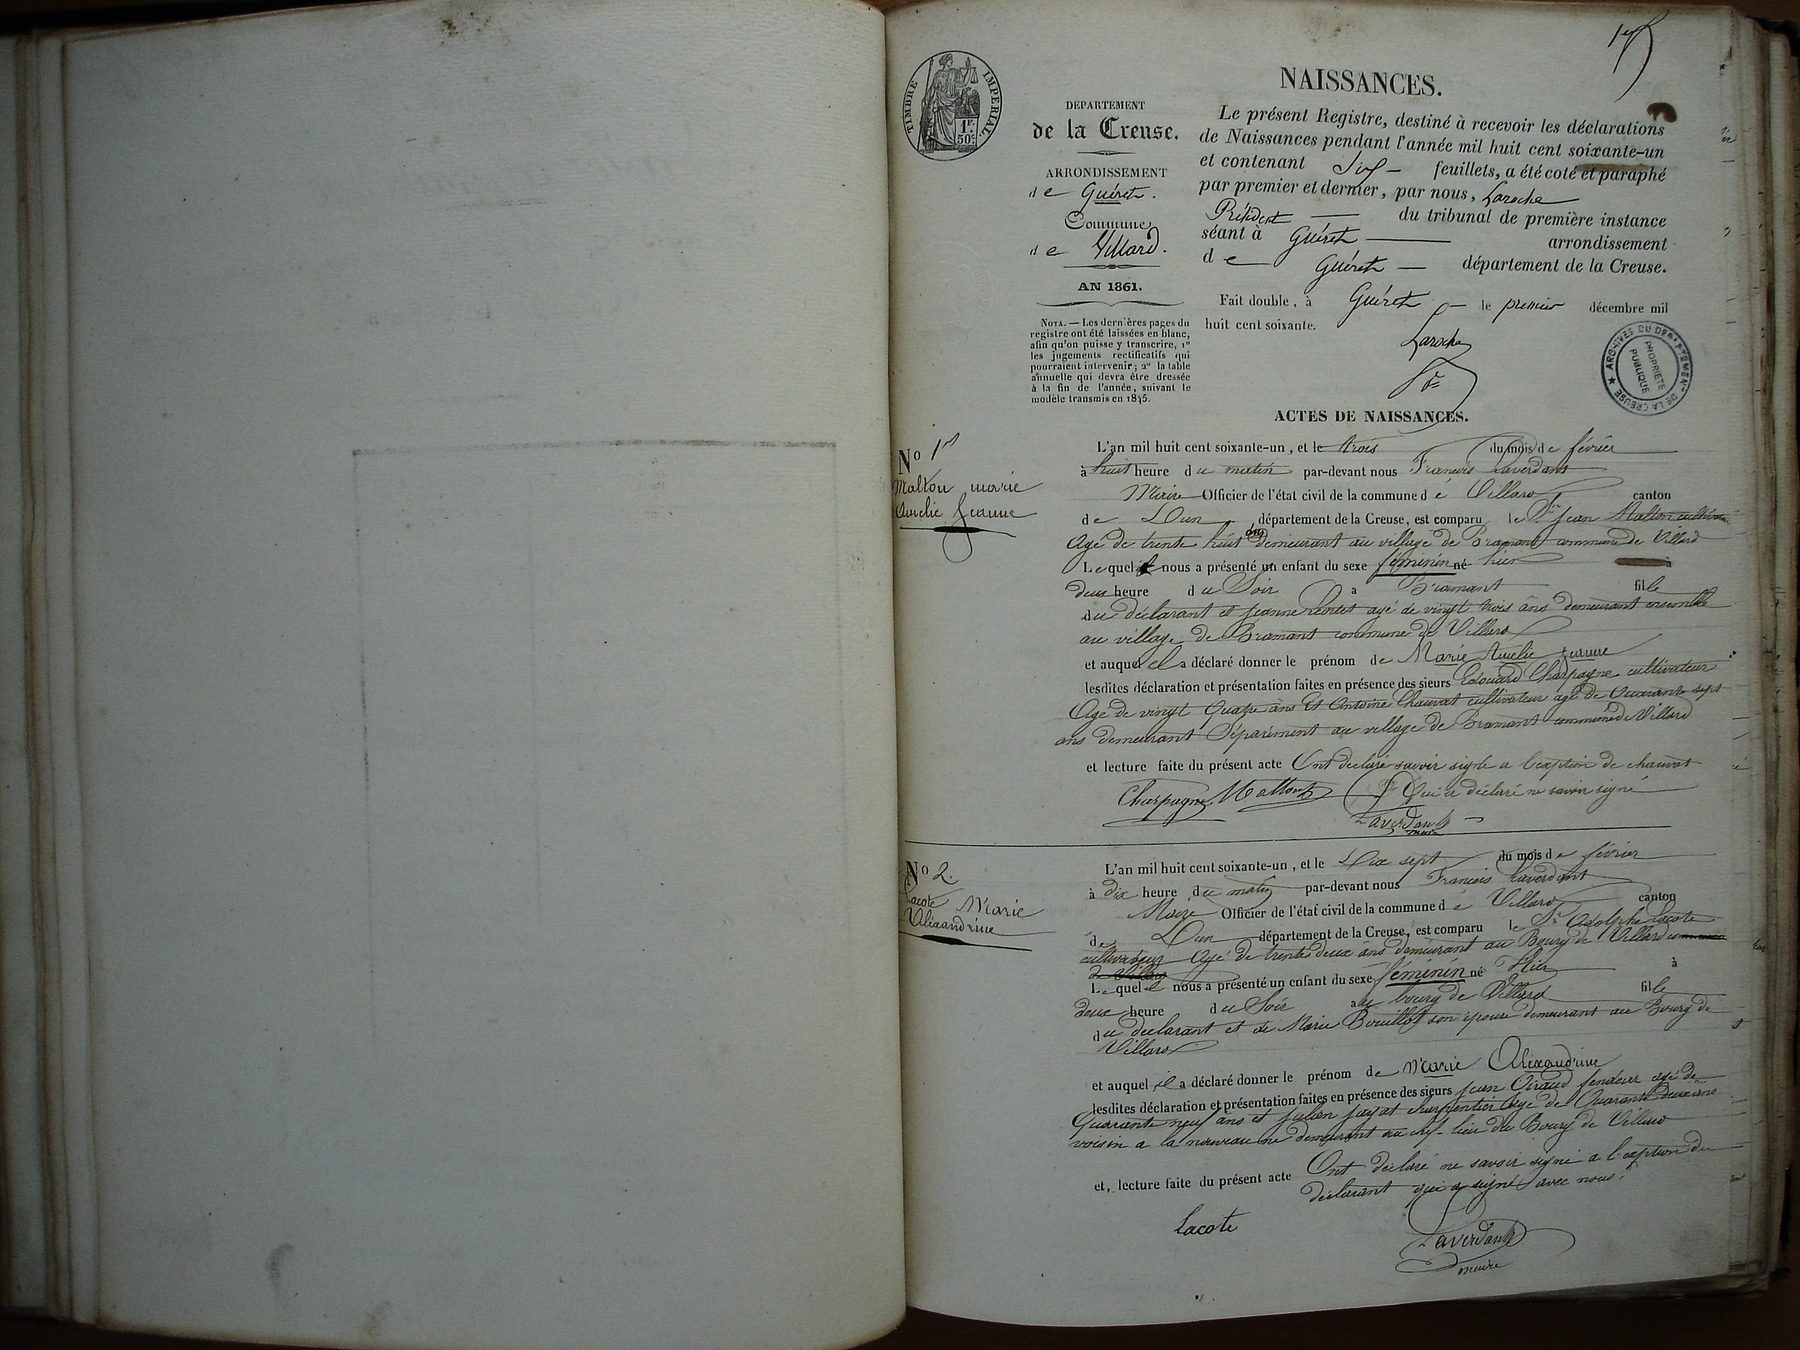 NAISSANCES.
TIMBRE IMPERIAL.
1F. 50c.
DÉPARTEMENT
de la Creuse.
ARRONDISSEMENT
de Guéret.
Commune
de Villard.
AN 1861.
NOTA. — Les dernières pages du
registre ont été laissées en blanc,
afin qu'on puisse y transcrire, 1°
les jugements rectificatifs qui
pourraient intervenir; 2° la table
annuelle qui devra être dressée
à la fin de l'année, suivant le
modèle transmis en 1845.
Le présent Registre, destiné à recevoir les déclarations
de Naissances pendant l'année mil huit cent soixante-un
et contenant Six feuillets, a été coté et paraphé
par premier et dernier, par nous, Laroche
Président du tribunal de première instance
séant à Guéret arrondissement
de Guéret département de la Creuse.
Fait double, à Guéret le premier décembre mil
huit cent soixante.
Laroche
ARCHIVES DU DEPARTEMENT DE LA CREUSE ★
PROPRIÉTÉ
PUBLIQUE
ACTES DE NAISSANCES.
No 1er
Malton marie
Aurelie Jeanne
L'an mil huit cent soixante-un, et le trois du mois de février
à huit heure du matin par-devant nous Francois Laverdant
Maire Officier de l'état civil de la commune de Villard canton
de Dun département de la Creuse, est comparu le Sr Jean Malton cultiv
Agé de trente huit ans demeurant au village de Bramant commune de Villard
Lequel nous a présenté un enfant du sexe féminin né hier à
deux heure du Soir a Bramant fille
du déclarant et Jeanne agé de vingt trois ans demeurant ensemble
au village de Bramant commune de Villard
et auquel il a déclaré donner le prénom de Marie Aurelie Jeanne
lesdites déclaration et présentation faites en présence des sieurs Edouard Chapagne cultivateur
Agé de vingt Quatre ans Et Antoine Chauvat cultivateur agé de Quarante sept
ans demeurant Séparément au village de Bramant commune de Villard
et lecture faite du présent acte Ont déclaré savoir signé a l'exption de chauvat
Qui a déclaré ne savoir signé
Laverdant
maire
No 2.
Lacote Marie
Alixandrine
L'an mil huit cent soixante-un, et le Dix sept du mois de février
à dix heure du matin par-devant nous Francois Laverdant
Maire Officier de l'état civil de la commune de Villard canton
de Dun département de la Creuse, est comparu le Sr Adolphe Lacote
cultivateur Agé de trente deux ans demeurant au Bourg de Villard commune
de Villard
Lequel il nous a présenté un enfant du sexe féminin né Hier à
deux heure du Soir au bourg de Villard fille
du déclarant et de Marie Bouillot son épouse demeurant au Bourg de
Villard
et auquel il a déclaré donner le prénom de Marie Alixandrine
lesdites déclaration et présentation faites en présence des sieurs Jean Giraud fendeur agé de
Quarante neuf ans et Julien Jayat charpentier Agé de Quarante deux ans
voisin a la nouveau né demeurant au chef-lieu du Bourg de Villard
et, lecture faite du présent acte Ont déclaré ne savoir signé a l'exption du
déclarant qui a signé avec nous.
Lacote
Laverdant
maire